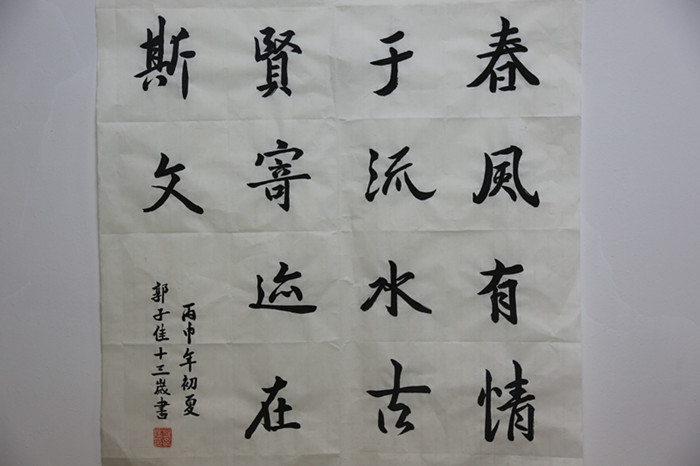 春风有情
于流水古
賢寄迹在
斯文
丙申年初夏
郭子佳十三歲書